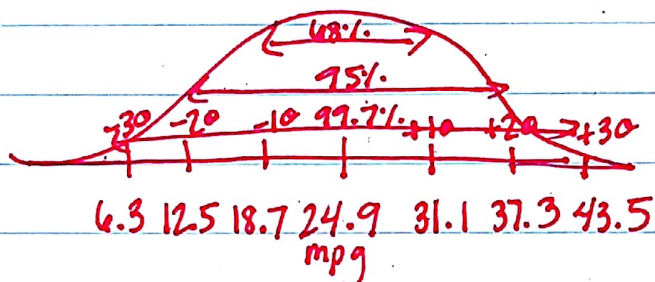 68%
95%
-3σ -2σ -1σ 99.7% +1σ +2σ +3σ
6.3 12.5 18.7 24.9 31.1 37.3 43.5
mpg